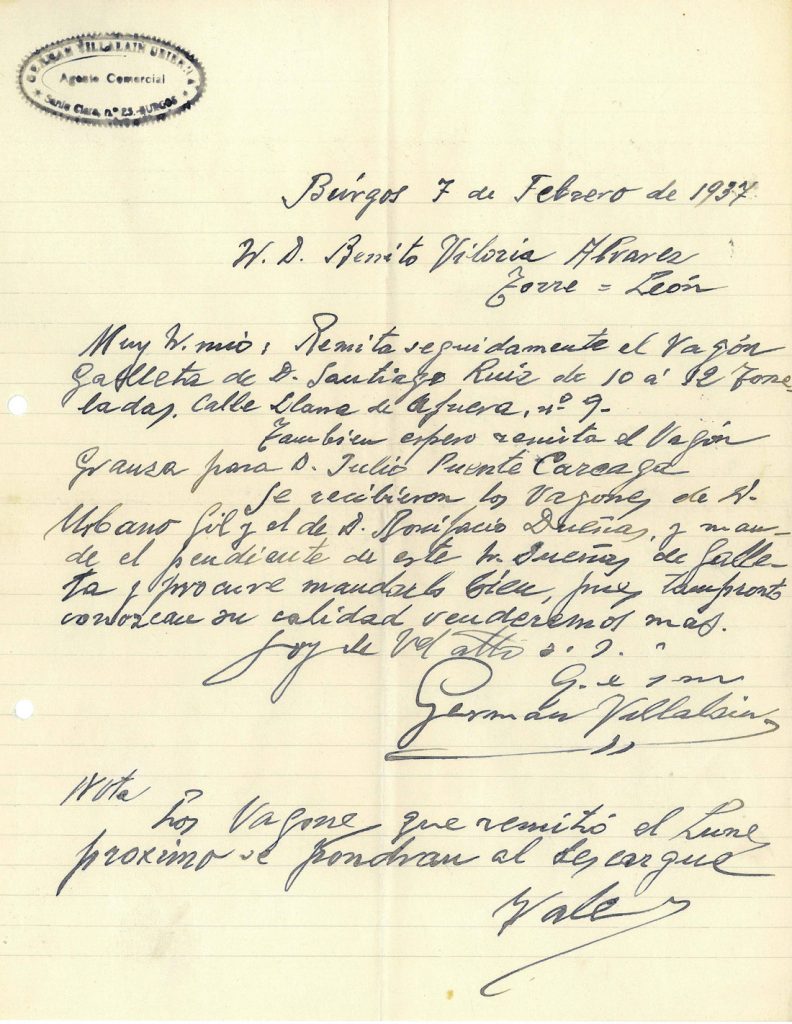 GERMAN VILLALAIN
Agente Comercial
Santa Clara, n.º 25.-BURGOS
Búrgos 7 de Febrero de 1937
D. Benito Viloria Alvarez
Torre = León
Muy mio: Remita seguidamente el Vagón
Galleta de D. Santiago Ruiz de 10 á 12 Tone-
ladas, Calle Llana de Afuera, nº 9-
Tambien espero remita el Vagón
Granza para D. Julio Puente Careaga
Se recibieron los Vagones de
Urbano Gil y el de D. Bonifacio Dueñas, y man-
de el pendiente de este Dueñas de Galle-
ta y procure mandarlo bien, pues tampronto
conozcan su calidad venderemos mas.
Soy de Vd atto s. s.
q. e s m
Germán Villalain
Nota
Los Vagones que remitió el Lunes
proximo se pondran al descargue
Vale